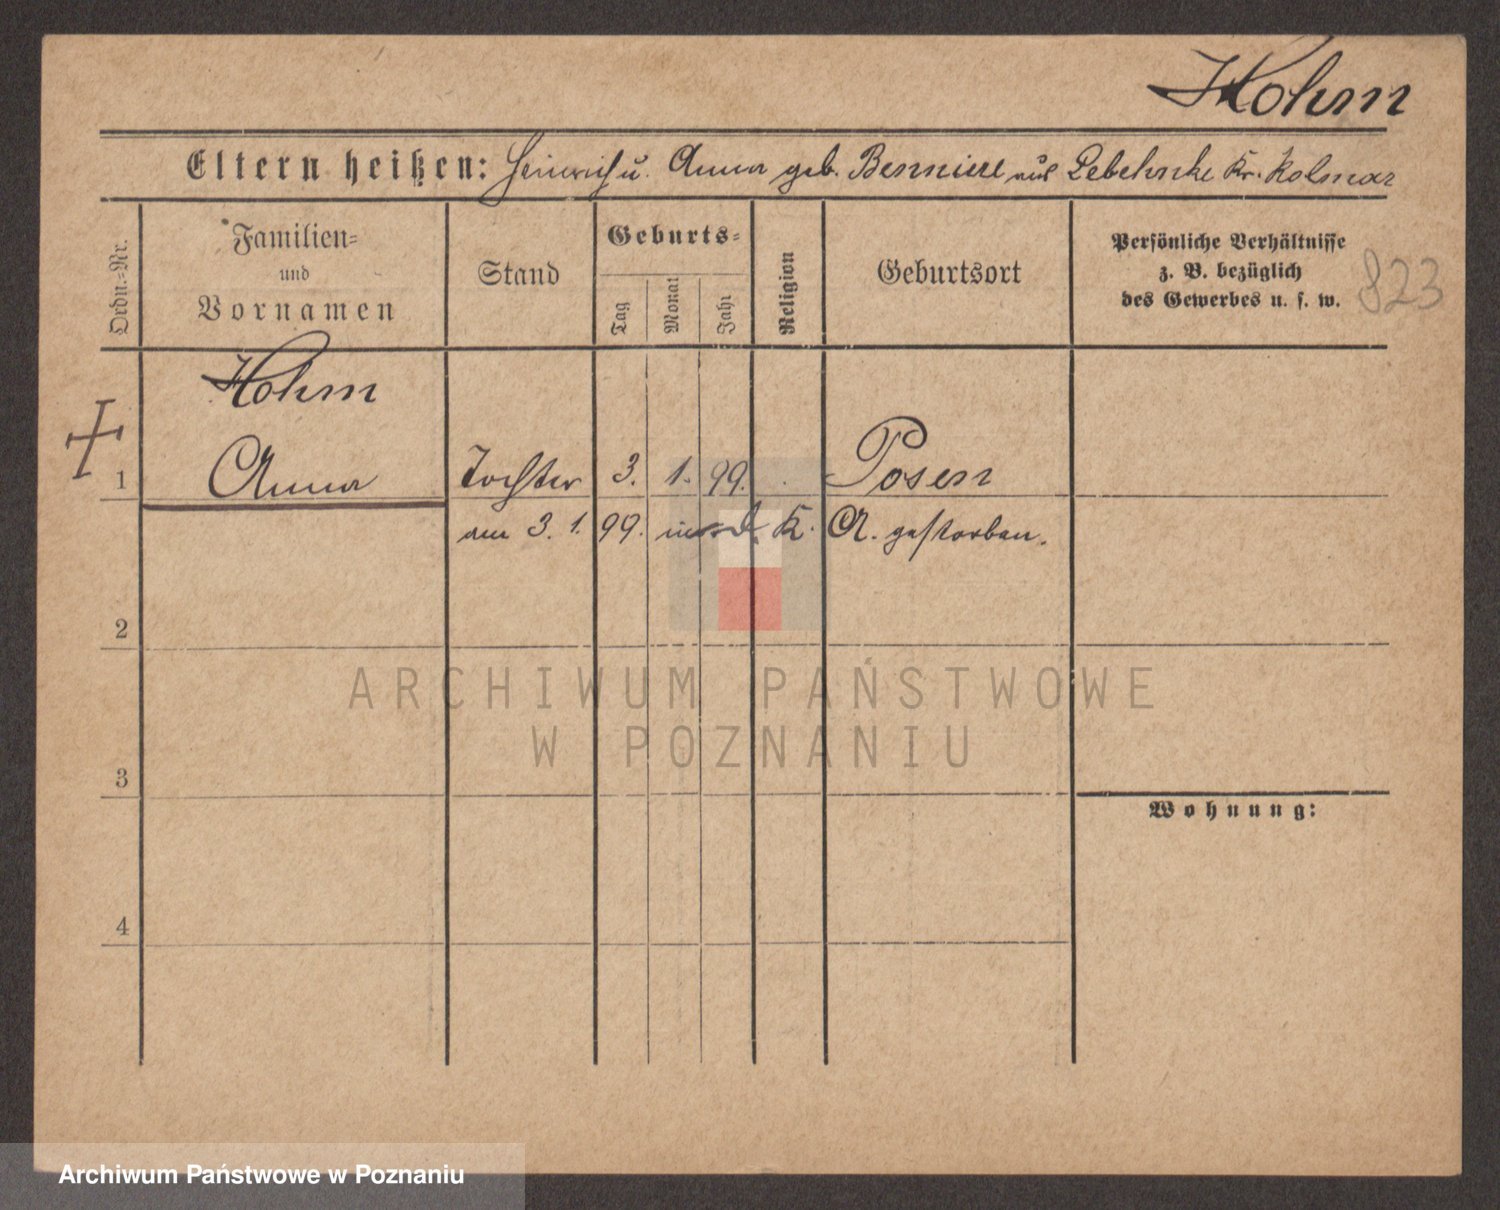 Hohm
Eltern heißen: Heinrich u. Anna geb. aus Lebehnke Kr. Kolmar
Ordn.-Nr.
Familien-
und
Vornamen
Stand
Geburts-
Tag
Monat
Jahr
Religion
Geburtsort
Persönliche Verhältnisse
z. B. bezüglich
des Gewerbes u. s. w.
823
Hohm
1 Anna Tochter 3. 1. 99. Posen
am 3. 1. 99. K. A. gestorben.
2
3
4
Wohnung:
ARCHIWUM PAŃSTWOWE
W POZNANIU
Archiwum Państwowe w Poznaniu